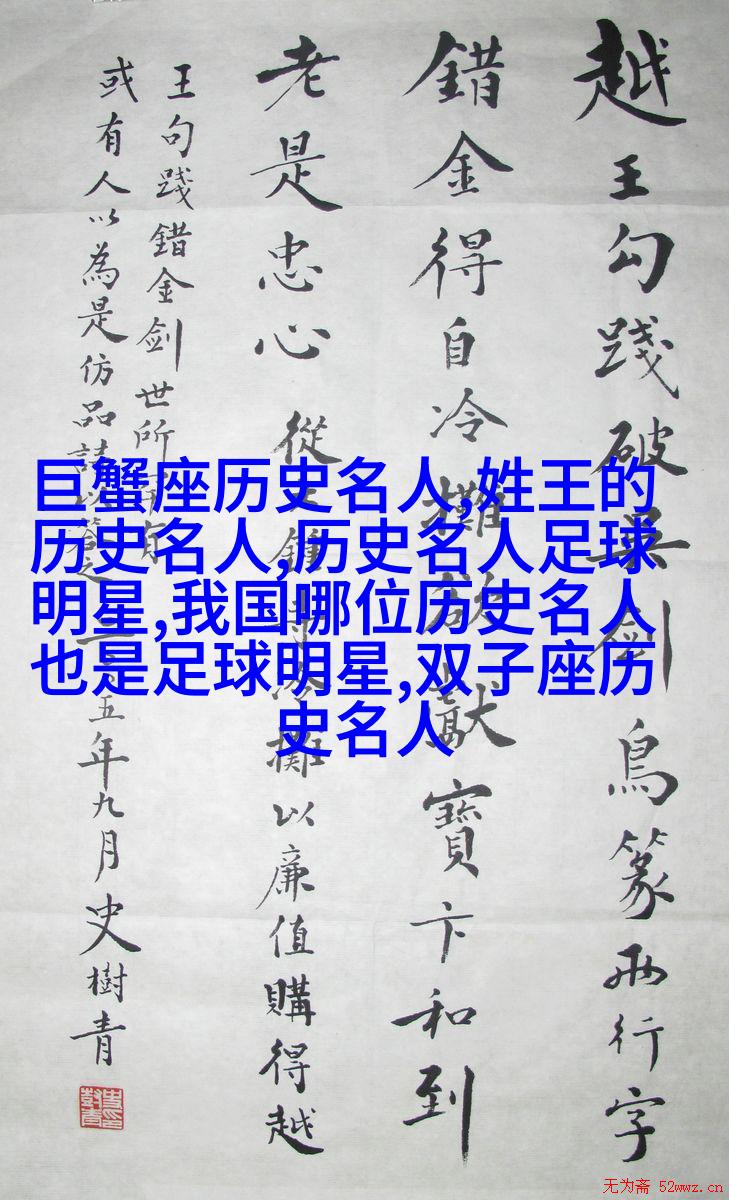 越王勾踐破吳剑鳥篆两行字
錯金得自冷攤欲獻寶卞和到
老是忠心 從冷攤以廉值購得越
王句踐錯金剑世所
或有人以為是仿品詩以答之五年九月史樹青
巨蟹座历史名人,姓王的
历史名人,历史名人足球
明星,我国哪位历史名人
也是足球明星,双子座历
史名人
无为斋 52wwz.cn